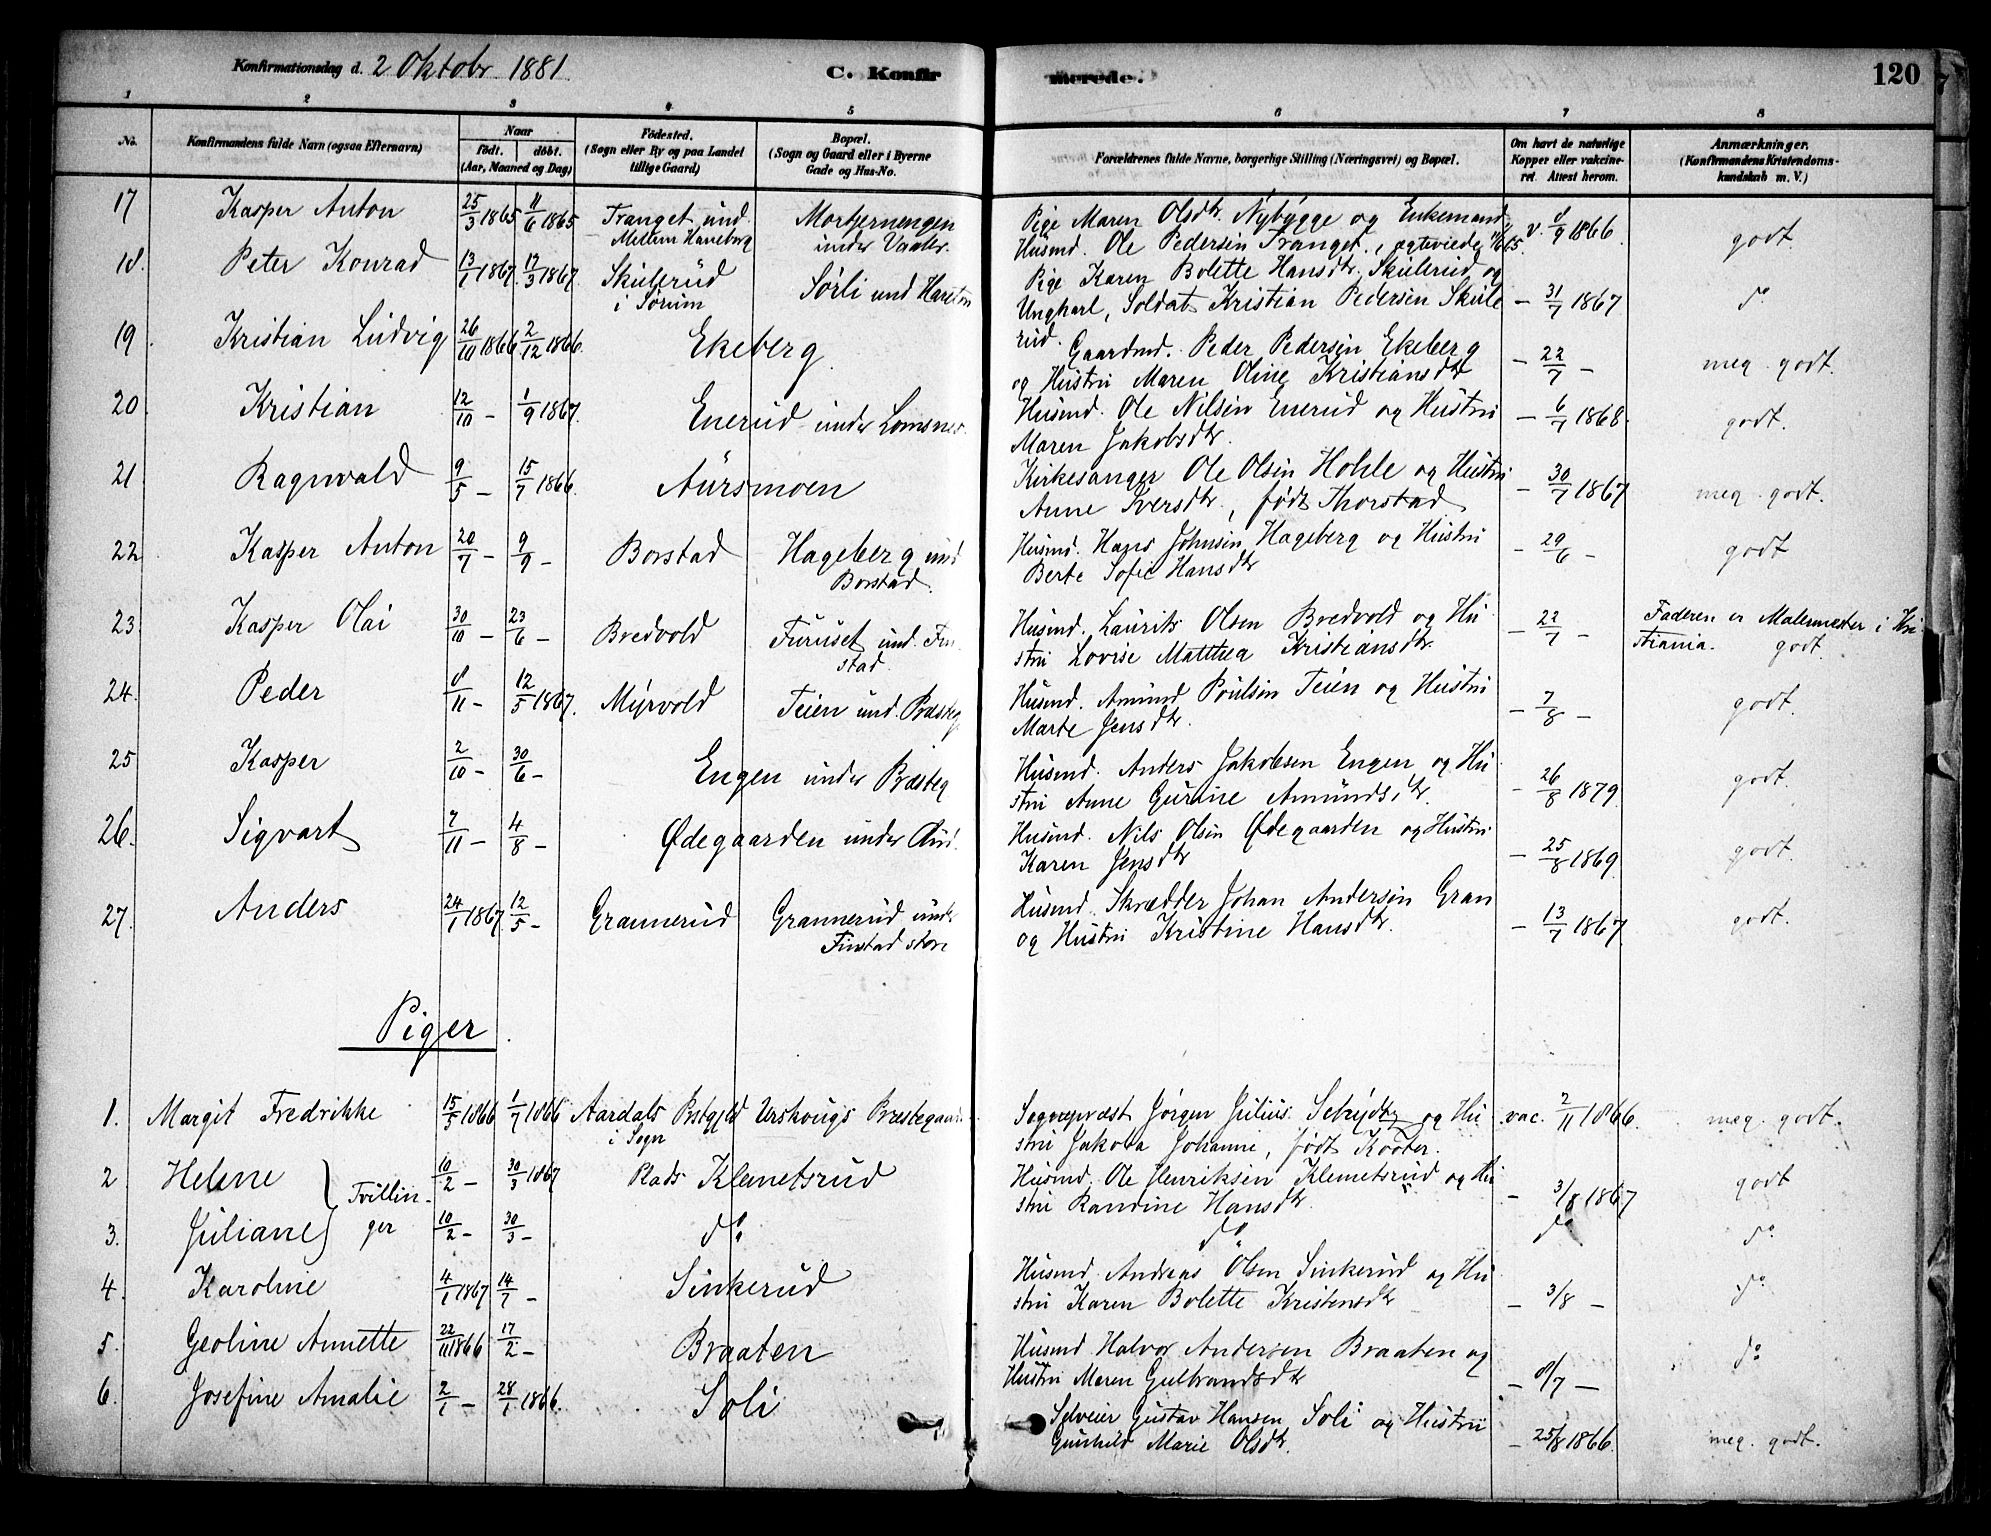 Konfirmationsdag d. 2 Oktobr 1881. C. Konfirmerede. 120
1 2 3 4 5 6 7 8
No. Konfirmandens fulde Navn (ogsaa Efternavn) Naar født. døbt. (Aar, Maaned og Dag) Fødested. (Sogn eller By og paa Landet tillige Gaard) Bopæl. (Sogn og Gaard eller i Byerne Gade og Hus-No. Forældrenes fulde Navne, borgerlige Stilling (Næringsvei) og Bopæl. Om havt de naturlige Kopper eller vakcineret. Attest herom. Anmærkninger. (Konfirmandens Kristendomskundskab m. V.)
17 Kasper Anton 25/3 1865 11/6 1865 Tranget und. Pige Maren Olsdtr. Nybygge og Enkemand v. 8/9 1866. godt.
Mellem Haneborg under Vaaler. Husmd. Ole Pedersen Tranget, ægteviede
18. Peter Konrad 13/1 1867. 17/3 1867. Skulerud i Sørum Sørli und Pige Karen Bolette Hansdtr. Skulerud og
Ungkarl, Soldat Kristian Pedersen Skulerud. – 31/7 1867 do
19. Kristian Ludvig 26/10 1866. 2/12 1866. Ekeberg Gaardmd. Peder Pedersen Ekeberg
og Hustru Maren Oline Kristiansdtr – 22/7 – meg. godt.
20. Kristian 12/10 – 1/9 1867. Enerud under Lomsnes. Husmd. Ole Nilsen Enerud og Hustru
Maren Jakobsdtr. – 6/7 1868. godt.
21 Ragnvald 9/5 – 15/7 1866. Aursmoen Kirkesanger Ole Olsen Hohle og Hustru
Anne Iversdtr., født Thorstad – 30/7 1867 meg. godt.
22. Kasper Anton 20/7 – 9/9 – Borstad Hageberg und Borstad. Husmd. Hans Johnsen Hageberg og Hustru
Berte Sofie Hansdtr – 29/6 – godt
23. Kasper Olai 30/10 – 23/6 – Bredvold Furuset und. Finstad. Husmd. Laurits Olsen Bredvold og Hustru
Lovise Matthea Kristiansdtr. – 22/7 – Faderen er Malermester i Kristiania. godt.
24. Peder 8/11 – 12/5 1867. Myrvold Teien und. Præsteg. Husmd. Amund Poulsen Teien og Hustru
Marte Jensdtr. – 7/8 – godt.
25 Kasper 2/10 – 30/6 – Engen under Præsteg Husmd. Anders Jakobsen Engen og Hustru
Anne Gurine Amundsdtr. – 26/8 1879. godt.
26. Sigvart 7/11 – 4/8 – Ødegaarden under Aur. Husmd. Nils Olsen Ødegaarden og Hustru
Karen Jensdtr – 25/8 1869 godt.
27. Anders 24/1 1867. 12/5 – Grannerud Grannerud under Finstad store Husmd. Skrædder Johan Andersen Gran
og Hustru Kristine Hansdtr. – 13/7 1867. godt.
Piger.
1. Margit Fredrikke 15/5 1866 1/7 1866 Aardals Prstgjld i Sogn Urskougs Præstegaard Sogneprest Jørgen Julius Schydtz og Hustru
Jakoba Johanne, født vac. 2/11 1866. meg. godt.
2 Helene } Tvillin- 10/2 – 30/3 1867 Klemetsrud Husmd. Ole Henriksen Klemetsrud og Hustru
Randine Hansdtr. – 3/8 1867 godt
3. Juliane } ger 10/2 – 30/3 – do do do do
4. Karoline 4/1 1867 14/7 – Sinkerud Husmd. Andreas Olsen Sinkerud og Hustru
Karen Bolette Kristensdtr – 3/8 – do
5. Geoline Annette 22/11 1866 17/2 – Braaten Husmd Halvor Andersen Braaten og
Hustru Maren Gulbrandsdtr – 8/7 – do
6. Josefine Amalie 2/1 – 28/1 1866. Soli Selveier Gustav Hansen Soli og Hustru
Gunhild Marie Olsdtr. – 25/8 1866. meg. godt.